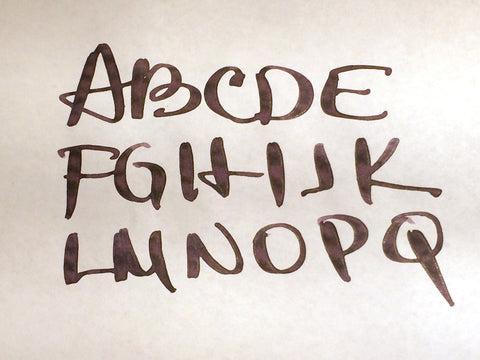 ABCDE
FGHIJK
LMNOPQ